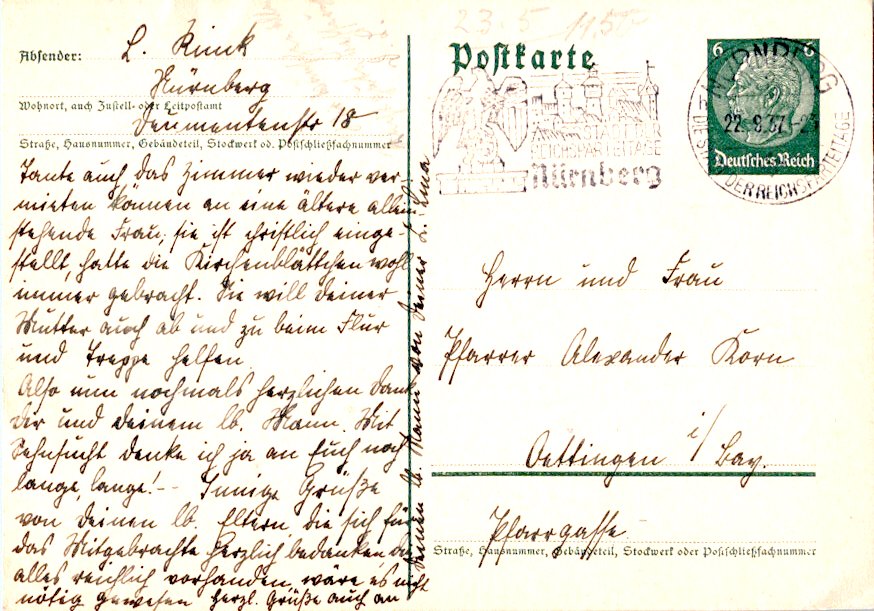 23.5
Postkarte
Absender: L. Rinck
Nürnberg
Wohnort, auch Zustell- oder Leitpostamt
18
Straße, Hausnummer, Gebäudeteil, Stockwerk od. Postschließfachnummer
6 6
NÜRNBERG
22.9.37
DIE STADT DER REICHSPARTEITAGE
Deutsches Reich
DIE STADT DER
REICHSPARTEITAGE
Nürnberg
Tante auch das Zimmer wieder ver-
mieten können an eine ältere allein
stehende Frau; sie ist christlich einge-
stellt, hatte die Kirchenblättchen wohl
immer gebracht. Sie will deiner
Mutter auch ab und zu beim Flur
und Treppe helfen.
Also nun nochmals herzlichen Dank
dir und deinem lb. Mann. Mit
Sehnsucht denke ich ja an Euch noch
lange, lange! -- Innige Grüße
von deinen lb. Eltern die sich für
das Mitgebrachte herzlich bedanken, da
alles reichlich vorhanden, wäre es nicht
nötig gewesen herzl. Grüße auch an
deinen lb. Mann von deiner L.
Herrn und Frau
Pfarrer Alexander Korn
Oettingen i/Bay.
Pfarrgasse
Straße, Hausnummer, Gebäudeteil, Stockwerk oder Postschließfachnummer